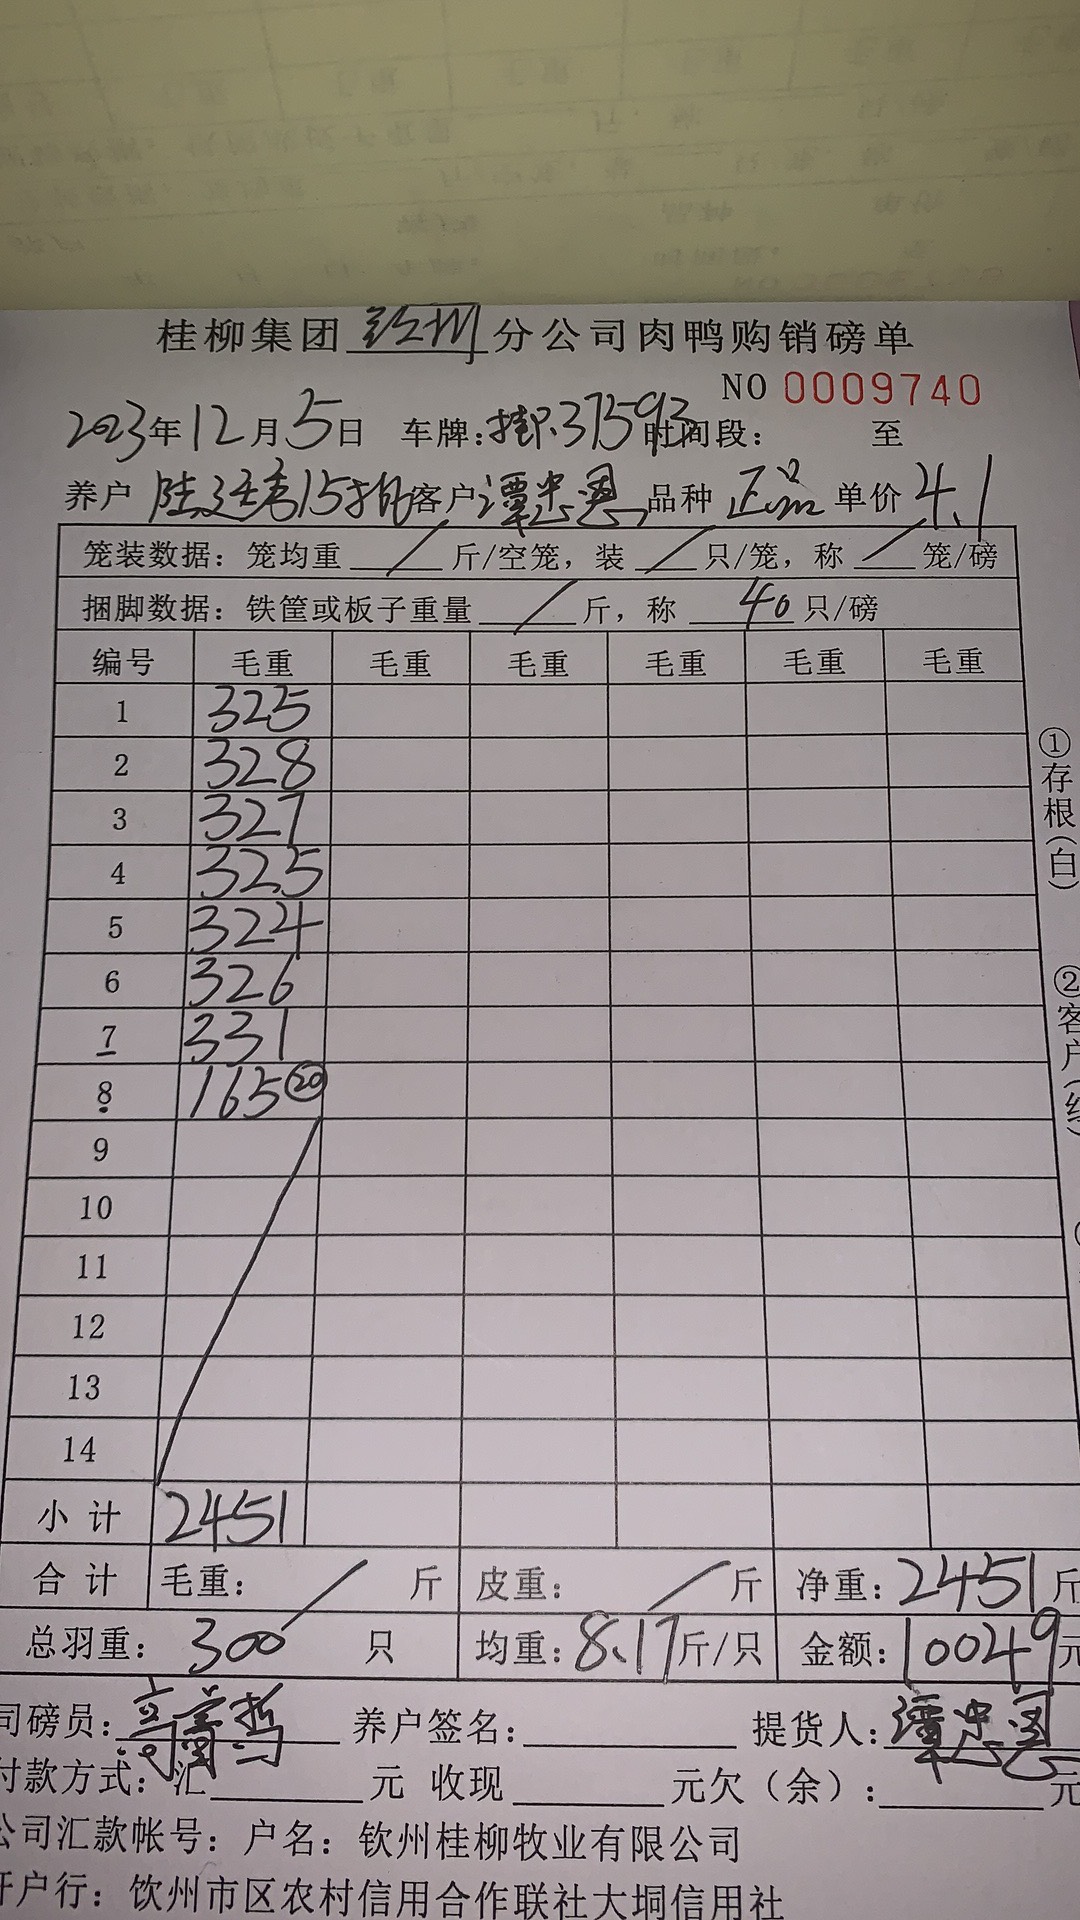 桂柳集团钦州分公司肉鸭购销磅单
NO 0009740
2023年12月5日 车牌:桂R37593时间段: 至
养户 陆廷秀15批客户谭忠恩品种 正品 单价4.1
笼装数据:笼均重 / 斤/空笼,装 / 只/笼,称 / 笼/磅
捆脚数据:铁筐或板子重量 / 斤,称 40 只/磅
编号 毛重 毛重 毛重 毛重 毛重 毛重
1 325
2 328
3 327
4 325
5 324
6 326
7 331
8 165 ⑳
9
10
11
12
13
14
小计 2451
合计 毛重: / 斤 皮重: / 斤 净重:2451斤
总羽重: 300 只 均重:8.17斤/只 金额:10049元
司磅员: 养户签名: 提货人:谭忠恩
付款方式:汇 元 收现 元欠(余): 元
公司汇款帐号:户名:钦州桂柳牧业有限公司
开户行:钦州市区农村信用合作联社大垌信用社
①存根(白)
②客户(红)